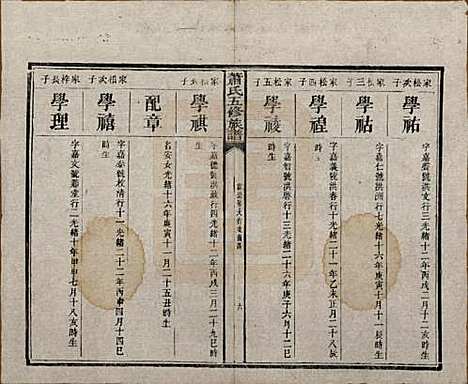 家松次子
學祐
字嘉 號洪文行三光緒十二年丙戌二月二十八辰時生
家松三子
學祜
字嘉仁號洪洲行七光緒十六年庚寅十月十一長時生
家松四子
學禋
字嘉義號洪春行十光緒二十一年乙未正月二十八辰時生
家松五子
學祾
字嘉 號洪曆行十三光緒二十六年庚子六月十二巳時生
蕭氏五修族譜
六
學祺
字嘉德號洪啟行四光緒十二年丙戌三月二十九巳時生
配章
名安女光緒十六年庚寅十一月二十五丑時生
家梧次子
學禧
字嘉 號 清行十一光緒二十二年丙申四月十四巳時生
家梓長子
學理
字嘉文號 堂行二光緒十年甲申七月十八亥時生